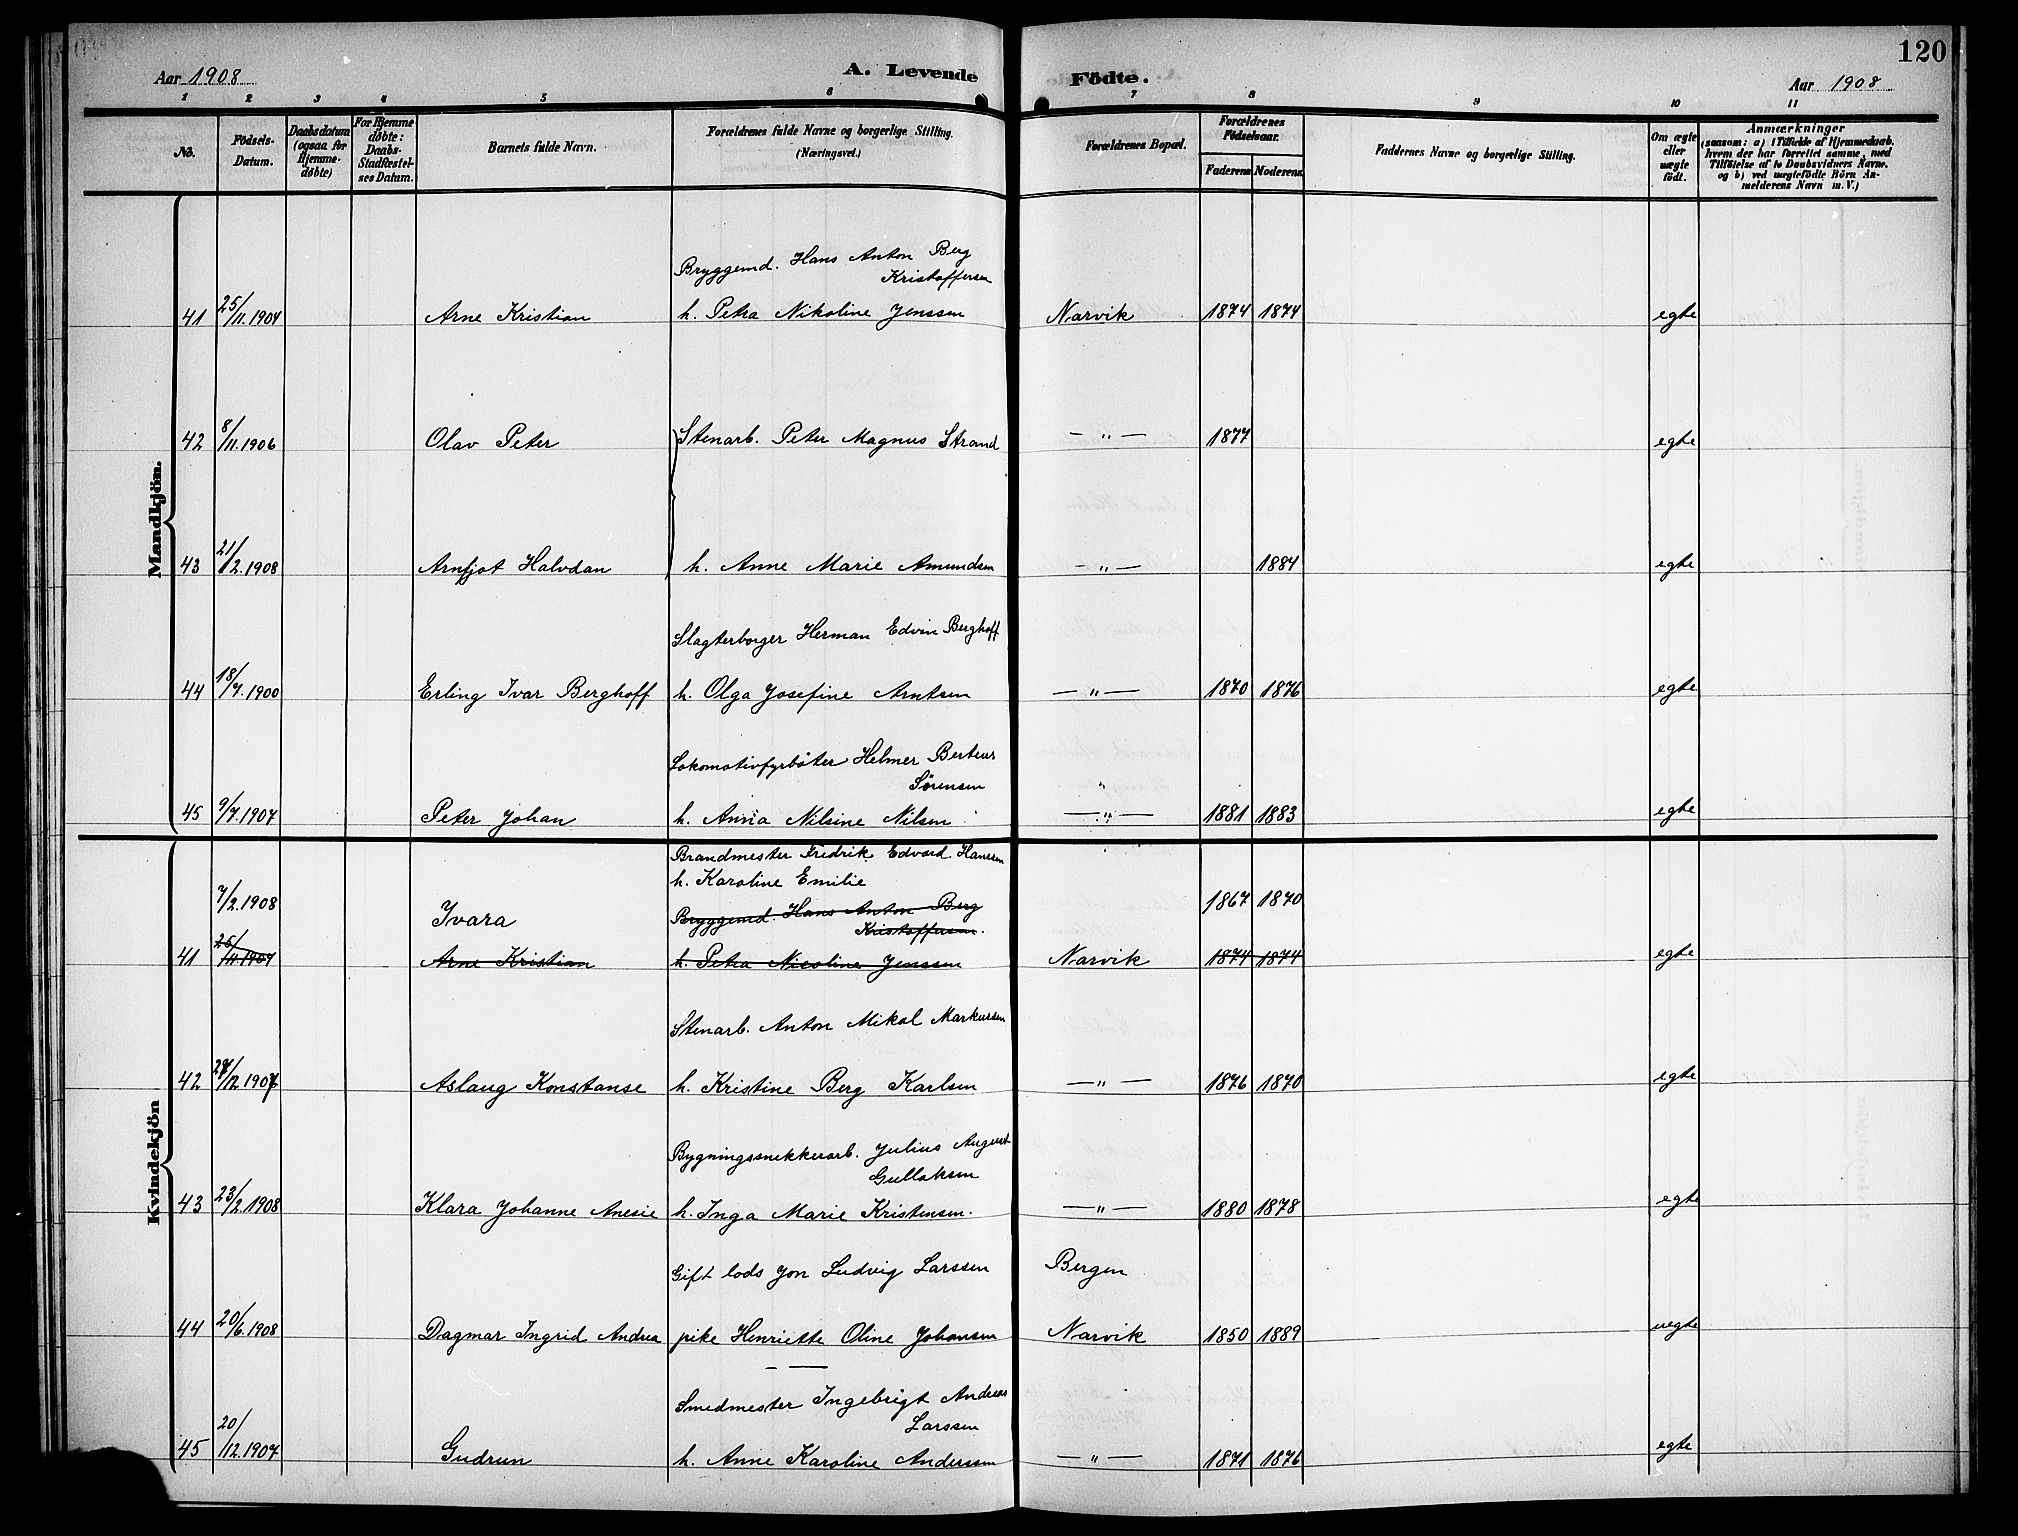 120
Aar 1908 A. Levende Födte. Aar 1908
1 2 3 4 5 6 7 8 9 10 11
No.
Födsels-Datum.
Daabsdatum (ogsaa for Hjemme-døbte)
For Hjemme døbte: Daabs-Stadfæstelses Datum.
Barnets fulde Navn.
Forældrenes fulde Navne og borgerlige Stilling. (Næringsvei.)
Forældrenes Bopæl.
Forældrenes Födselsaar.
Faderens Moderens
Faddernes Navne og borgerlige Stilling.
Om ægte eller uægte födt.
Anmærkninger
(saasom: a) i Tilfælde af Hjemmedaab, hvem der har forrettet samme, med Tilföielse af to Daabsvidners Navne, og b) ved uægtefödte Börn Anmelderens Navn m. V.)
Mandkjön.
Bryggemd. Hans Anton Berg
Kristoffersen
41 25/11.1907 Arne Kristian h. Petra Nikoline Jenssen Narvik 1874 1874 egte
42 8/11.1906 Olav Peter Stenarb. Peter Magnus Strand — " — 1877 egte
43 21/2.1908 Arnfjot Halvdan h. Anne Marie Amundsen — " — 1884 egte
Slagterborger Herman Edvin Berghoff
44 18/7.1900 Erling Ivar Berghoff h. Olga Josefine Arntsen — " — 1870 1876 egte
Lokomotivfyrbøter Helmer Berteus
Sørensen
45 9/7.1907 Peter Johan h. Anna Nilsine Nilsen — " — 1881 1883 egte
Kvindekjön
Brandmester Fredrik Edvard Hanssen
h. Karoline Emilie
7/2.1908 Ivara 1867 1870
Bryggemd. Hans Anton Berg
Kristoffersen.
41 25/11.1907 Arne Kristian h. Petra Nicoline Jenssen Narvik 1874 1874 egte
Stenarb. Anton Mikal Markussen
42 27/12 1907 Aslaug Konstanse h. Kristine Berg Karlsen — " — 1876 1870 egte
Bygningssnekkerarb. Julius August
Gullaksen
43 23/2.1908 Klara Johanne Anesie h. Inga Marie Kristensen. — " — 1880 1878 egte
Gift lods Jon Ludvig Larssen Bergen
44 20/6.1908 Dagmar Ingrid Andrea pike Henriette Oline Johansen Narvik 1850 1889 uegte
Smedmester Ingebrigt Andreas
Larssen
45 20/12.1907 Gudrun h. Anne Karoline Anderssen — " — 1871 1876 egte